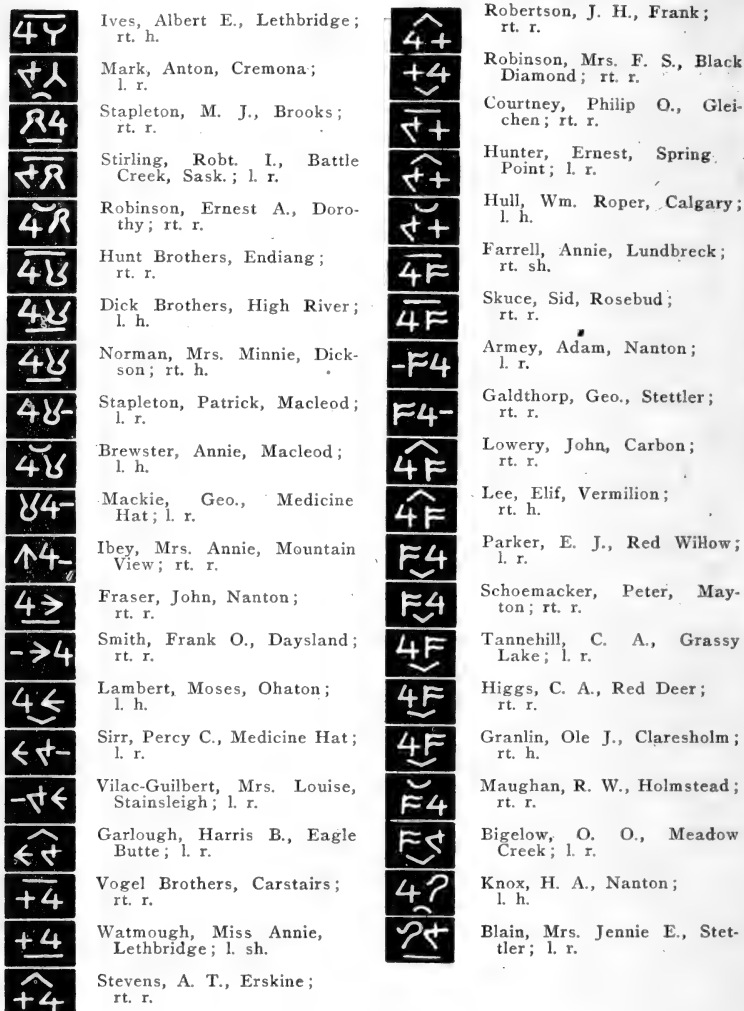 Ives, Albert E., Lethbridge;
rt. h.
Mark, Anton, Cremona;
l. r.
Stapleton, M. J., Brooks;
rt. r.
Stirling, Robt. I., Battle
Creek, Sask.; l. r.
Robinson, Ernest A., Doro-
thy; rt. r.
Hunt Brothers, Endiang;
rt. r.
Dick Brothers, High River;
l. h.
Norman, Mrs. Minnie, Dick-
son; rt. h.
Stapleton, Patrick, Macleod;
l. r.
Brewster, Annie, Macleod;
l. h.
Mackie, Geo., Medicine
Hat; l. r.
Ibey, Mrs. Annie, Mountain
View; rt. r.
Fraser, John, Nanton;
rt. r.
Smith, Frank O., Daysland;
rt. r.
Lambert, Moses, Ohaton;
l. h.
Sirr, Percy C., Medicine Hat;
l. r.
Vilac-Guilbert, Mrs. Louise,
Stainsleigh; l. r.
Garlough, Harris B., Eagle
Butte; l. r.
Vogel Brothers, Carstairs;
rt. r.
Watmough, Miss Annie,
Lethbridge; l. sh.
Stevens, A. T., Erskine;
rt. r.
Robertson, J. H., Frank;
rt. r.
Robinson, Mrs. F. S., Black
Diamond; rt. r.
Courtney, Philip O., Glei-
chen; rt. r.
Hunter, Ernest, Spring
Point; l. r.
Hull, Wm. Roper, Calgary;
l. h.
Farrell, Annie, Lundbreck;
rt. sh.
Skuce, Sid, Rosebud;
rt. r.
Armey, Adam, Nanton;
l. r.
Galdthorp, Geo., Stettler;
rt. r.
Lowery, John, Carbon;
rt. r.
Lee, Elif, Vermilion;
rt. h.
Parker, E. J., Red Willow;
l. r.
Schoemacker, Peter, May-
ton; rt. r.
Tannehill, C. A., Grassy
Lake; l. r.
Higgs, C. A., Red Deer;
rt. r.
Granlin, Ole J., Claresholm;
rt. h.
Maughan, R. W., Holmstead;
rt. r.
Bigelow, O. O., Meadow
Creek; l. r.
Knox, H. A., Nanton;
l. h.
Blain, Mrs. Jennie E., Stet-
tler; l. r.